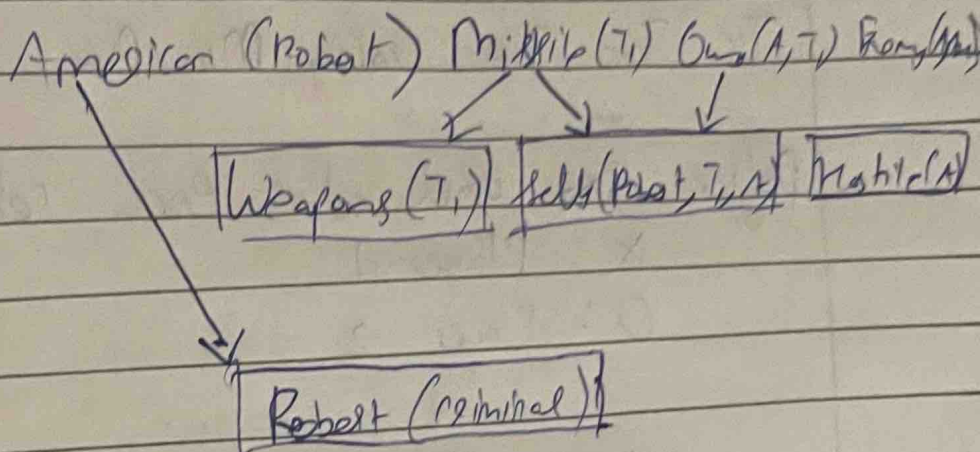 American (Robert) Missile (T₁) Own (A, T₁)
Weapons (T₁) Sells (Robert, T₁, A) Hostile (A)
Robert (criminal)